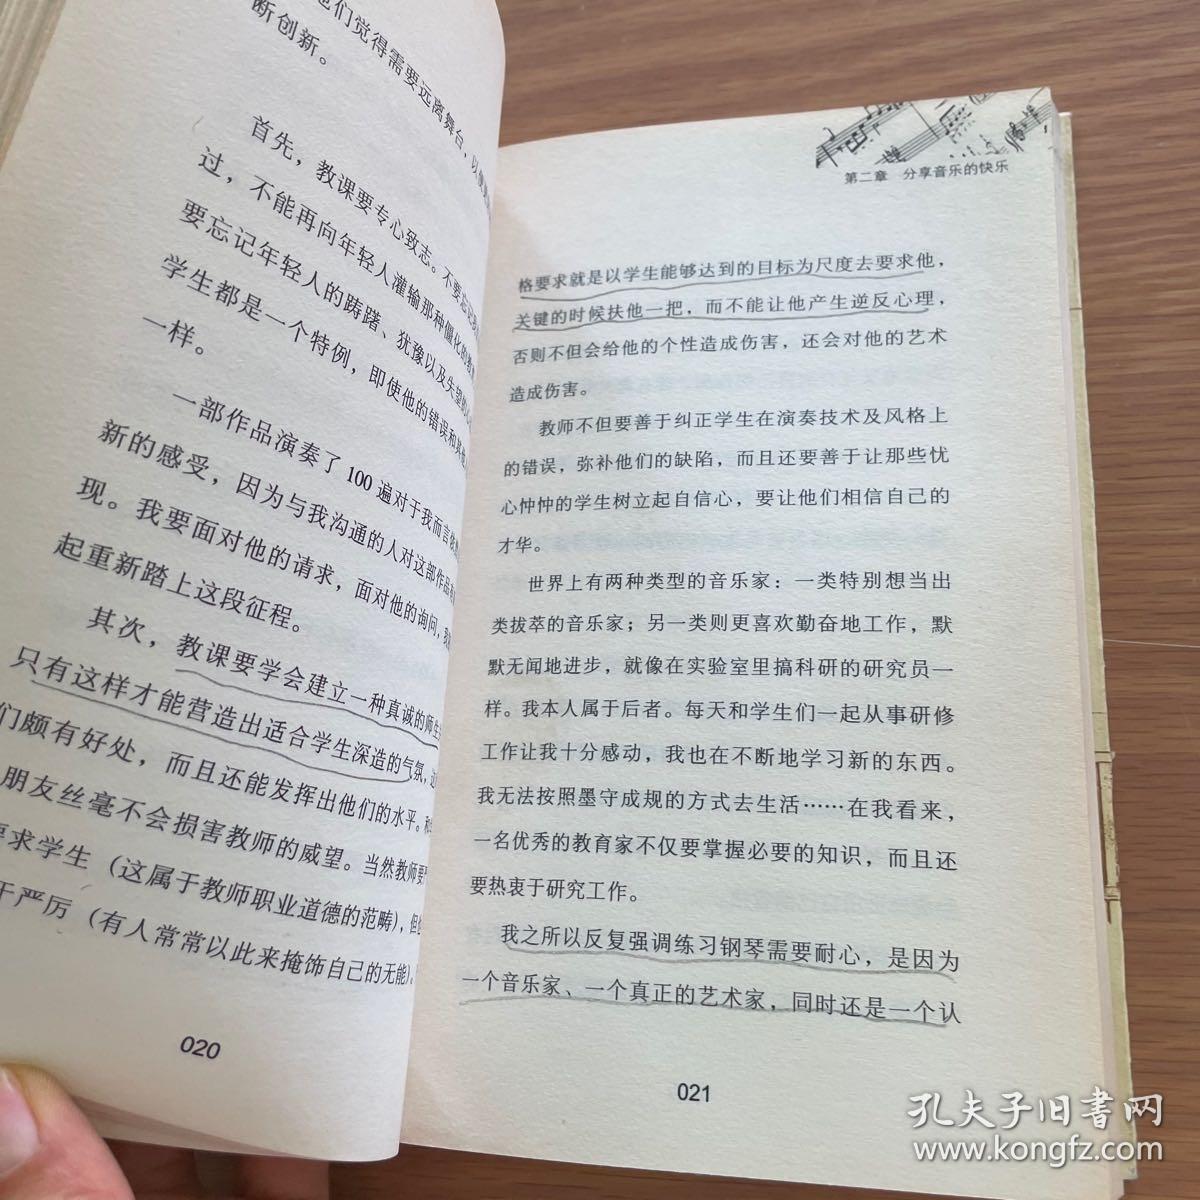 他们觉得需要远离舞台，以便
断创新。
首先，教课要专心致志。不要忘记
过，不能再向年轻人灌输那种僵化的教
要忘记年轻人的踌躇、犹豫以及失望的心
学生都是一个特例，即使他的错误和其他
一样。
一部作品演奏了100遍对于我而言依然
新的感受，因为与我沟通的人对这部作品
现。我要面对他的请求，面对他的询问，
起重新踏上这段征程。
其次，教课要学会建立一种真诚的师生
只有这样才能营造出适合学生深造的气氛，
们颇有好处，而且还能发挥出他们的水平。
朋友丝毫不会损害教师的威望。当然教师要
要求学生（这属于教师职业道德的范畴），但
于严厉（有人常常以此来掩饰自己的无能）。
020
第二章 分享音乐的快乐
格要求就是以学生能够达到的目标为尺度去要求他，
关键的时候扶他一把，而不能让他产生逆反心理，
否则不但会给他的个性造成伤害，还会对他的艺术
造成伤害。
教师不但要善于纠正学生在演奏技术及风格上
的错误，弥补他们的缺陷，而且还要善于让那些忧
心忡忡的学生树立起自信心，要让他们相信自己的
才华。
世界上有两种类型的音乐家：一类特别想当出
类拔萃的音乐家；另一类则更喜欢勤奋地工作，默
默无闻地进步，就像在实验室里搞科研的研究员一
样。我本人属于后者。每天和学生们一起从事研修
工作让我十分感动，我也在不断地学习新的东西。
我无法按照墨守成规的方式去生活……在我看来，
一名优秀的教育家不仅要掌握必要的知识，而且还
要热衷于研究工作。
我之所以反复强调练习钢琴需要耐心，是因为
一个音乐家、一个真正的艺术家，同时还是一个认
021
孔夫子旧书网
www.kongfz.com